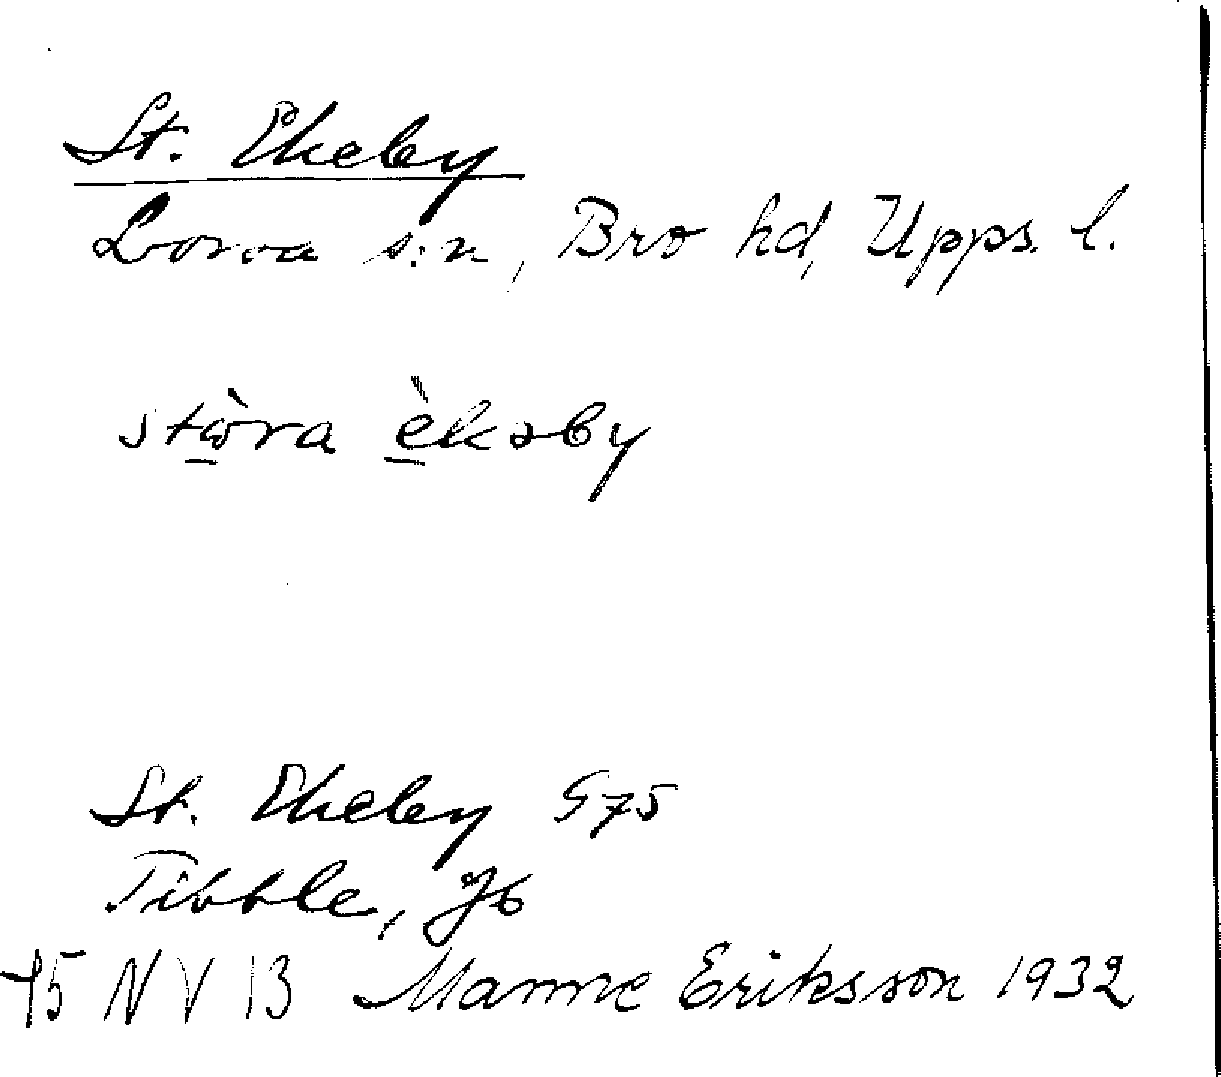 St. Ekeby
Lovoa s:n, Bro hd, Upps. l.
stὼra èkəby
St. Ekeby G75
Tibble, Jb
75 NV 13 Manne Eriksson 1932